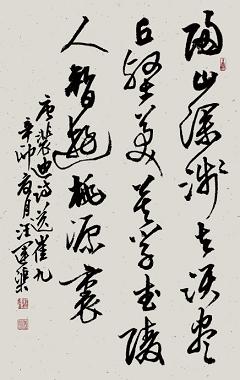 歸山深淺去須盡
丘壑美莫學武陵
人暫遊桃源裏
唐裴迪詩送崔九
辛卯春月汪運渠